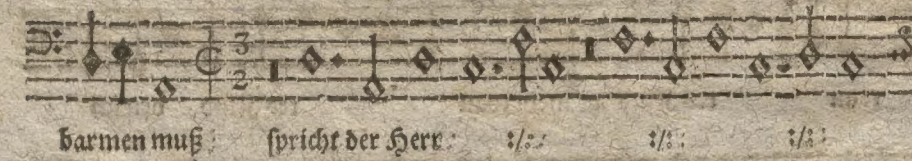 3
2
barmen muß: spricht der Herr: :/: :/: :/: